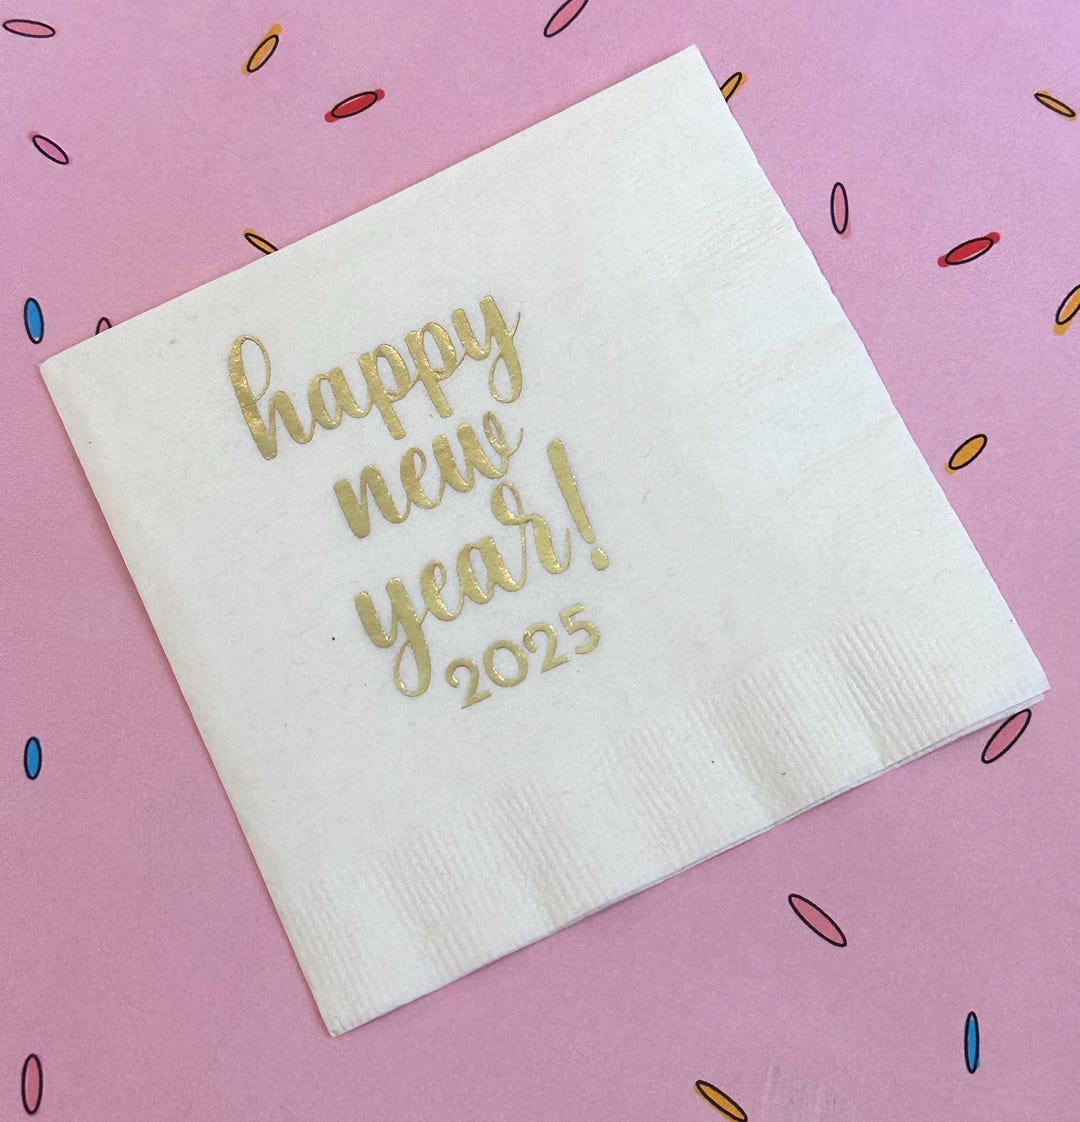 happy
new
year!
2025